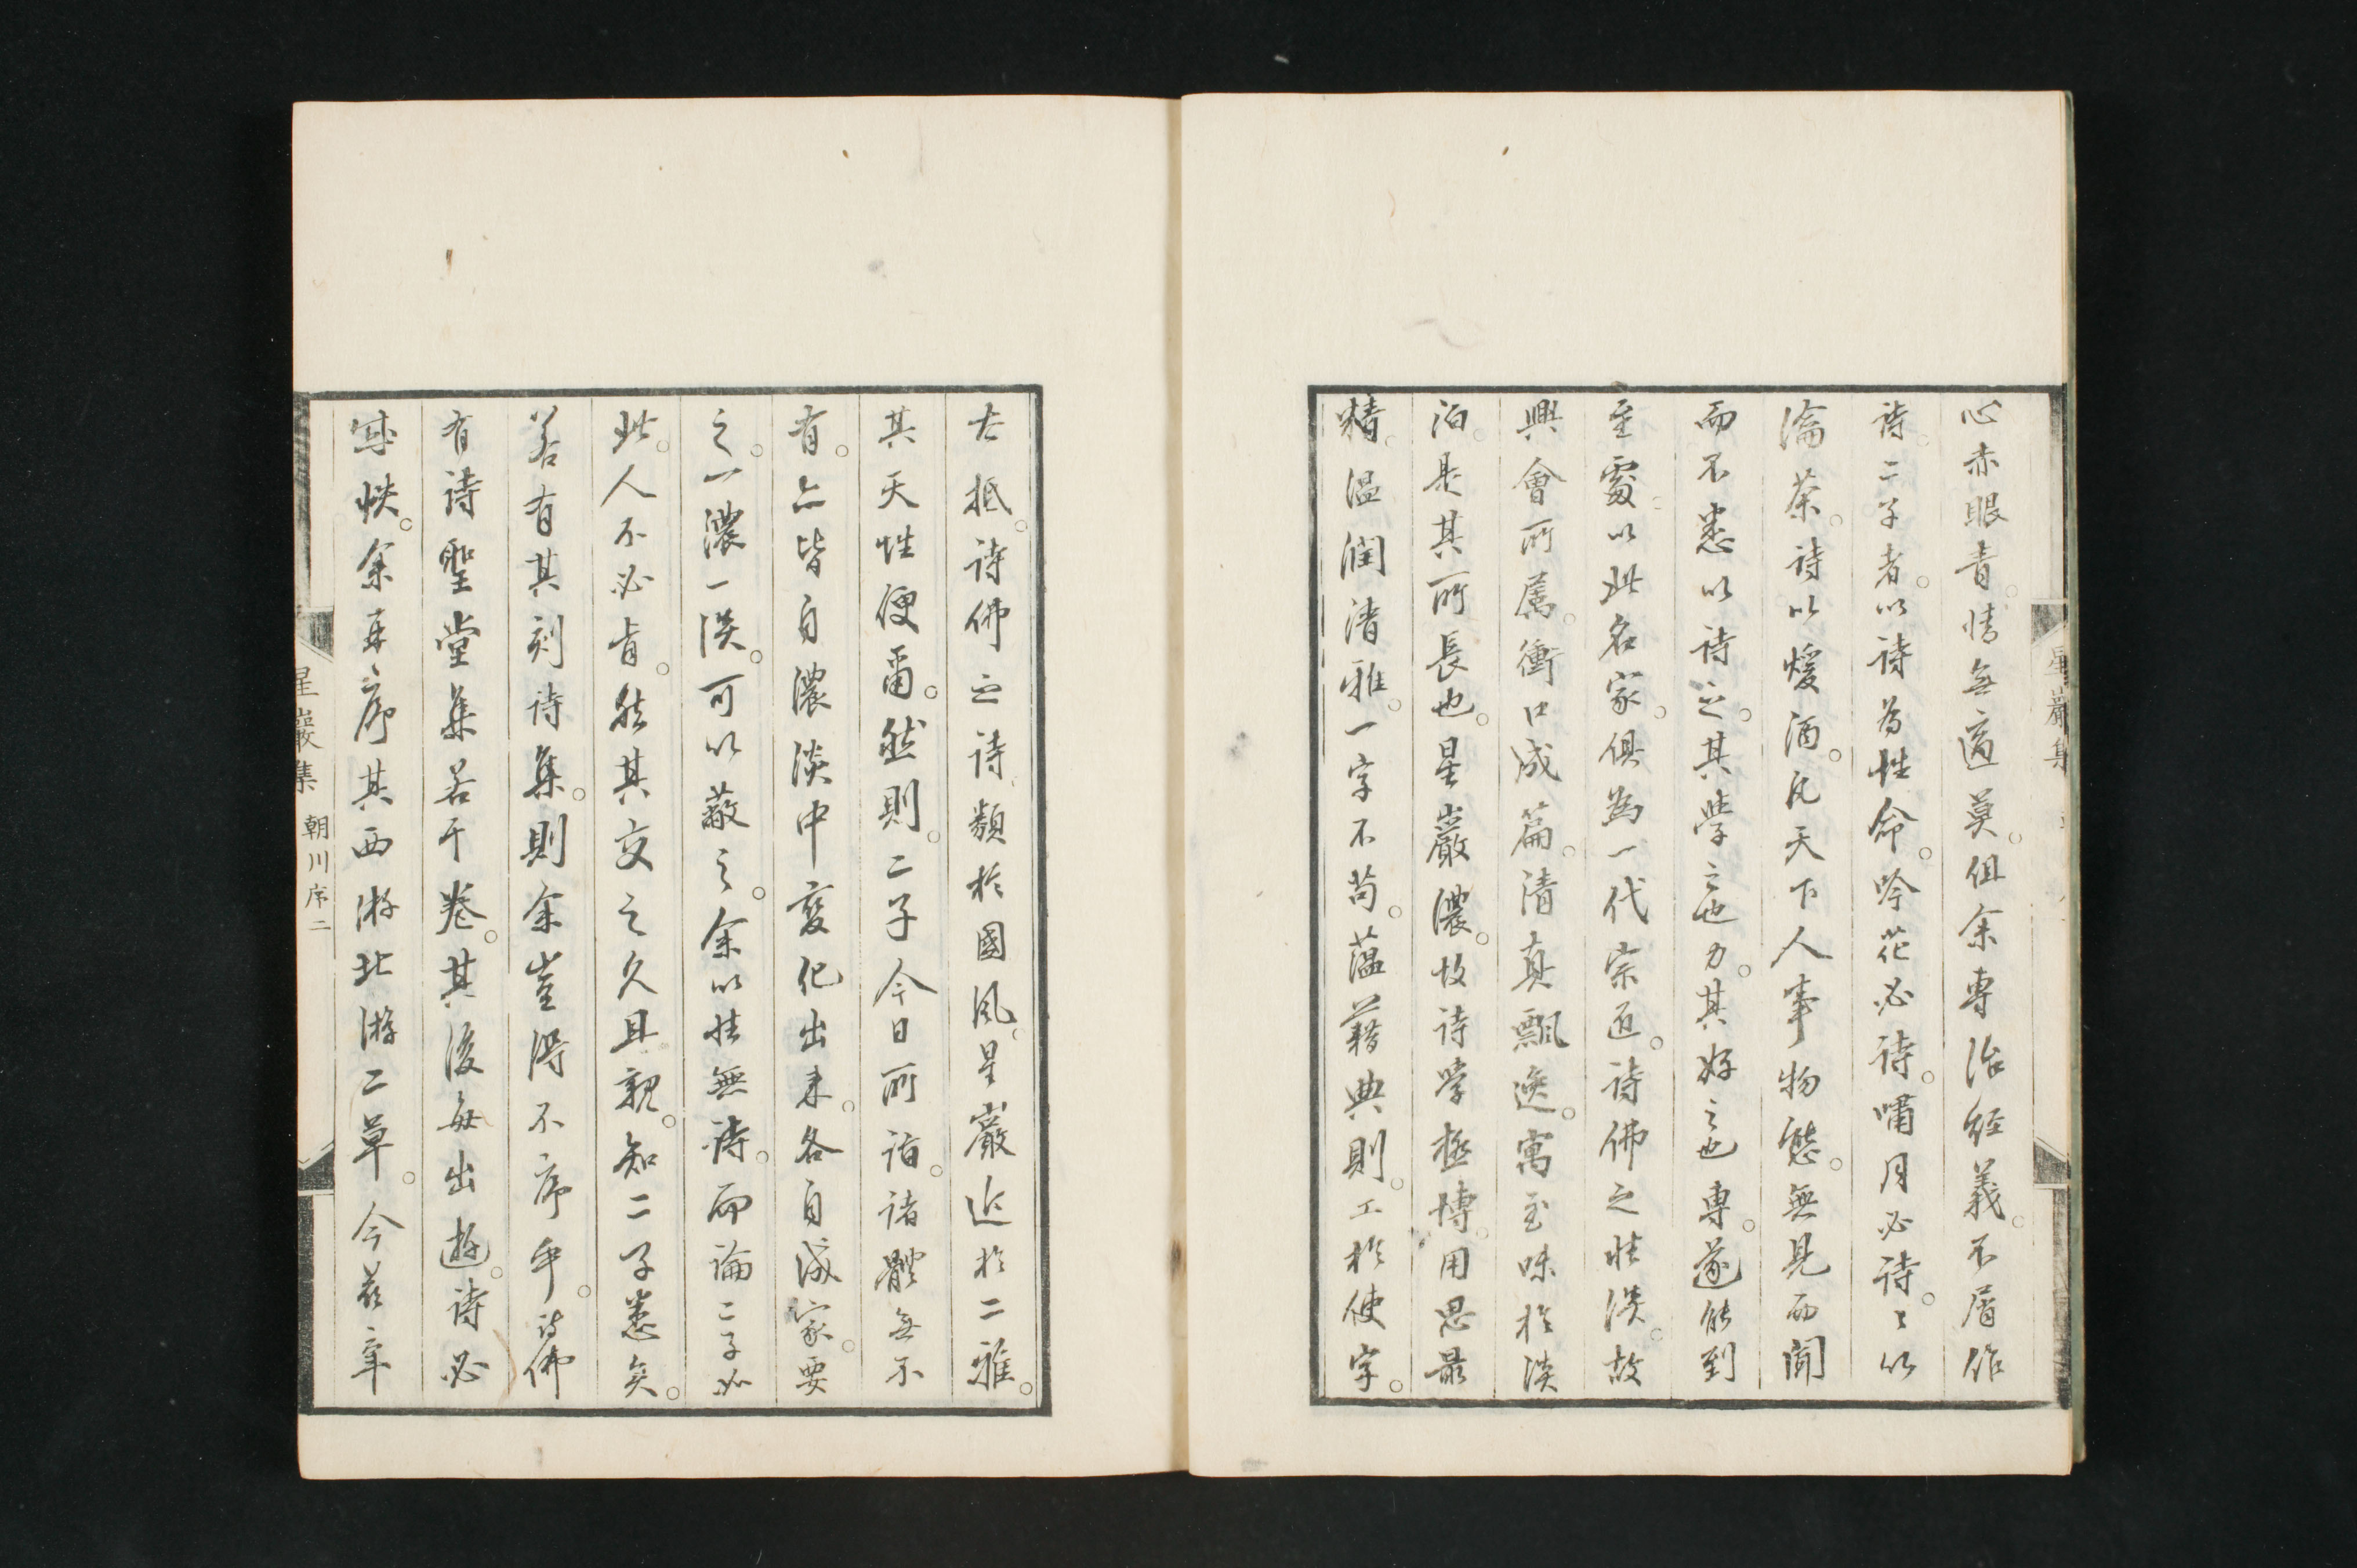 心赤眼青。情無適莫。但余專治經義。不屑作
詩。二子者。以詩為性命。吟花必詩。嘯月必詩。〻以
瀹茶。詩以煖酒。凡天下人事物態。無見而聞
而不悉以詩之。其學之也力。其好之也專。遂能到
至處。以此名家。俱為一代宗匠。詩佛之性淡。故
興會所属。衝口成篇。清真飄逸。寓至味於淡
泊。是其所長也。星巖濃。故詩學極博。用思最
精。温潤清雅。一字不苟。蘊藉典則。工於使字。
大抵。詩佛之詩、類於國風。星巖近於二雅。
其天性便爾。然則。二子今日所詣。諸體無不
有。亦皆自濃淡中變化出来。各自成家。要
之。一濃一淡。可以蔽之。余以性無詩。而論二子如
此。人不必肯。然其交之久且親。知二子悉矣。
若有其刻詩集。則余豈得不序乎。詩佛
有詩聖堂集若干卷。其後每出遊。詩必
成帙。余再〻序其西游北游二草。今茲辛
星巖集
星巖集 朝川序二